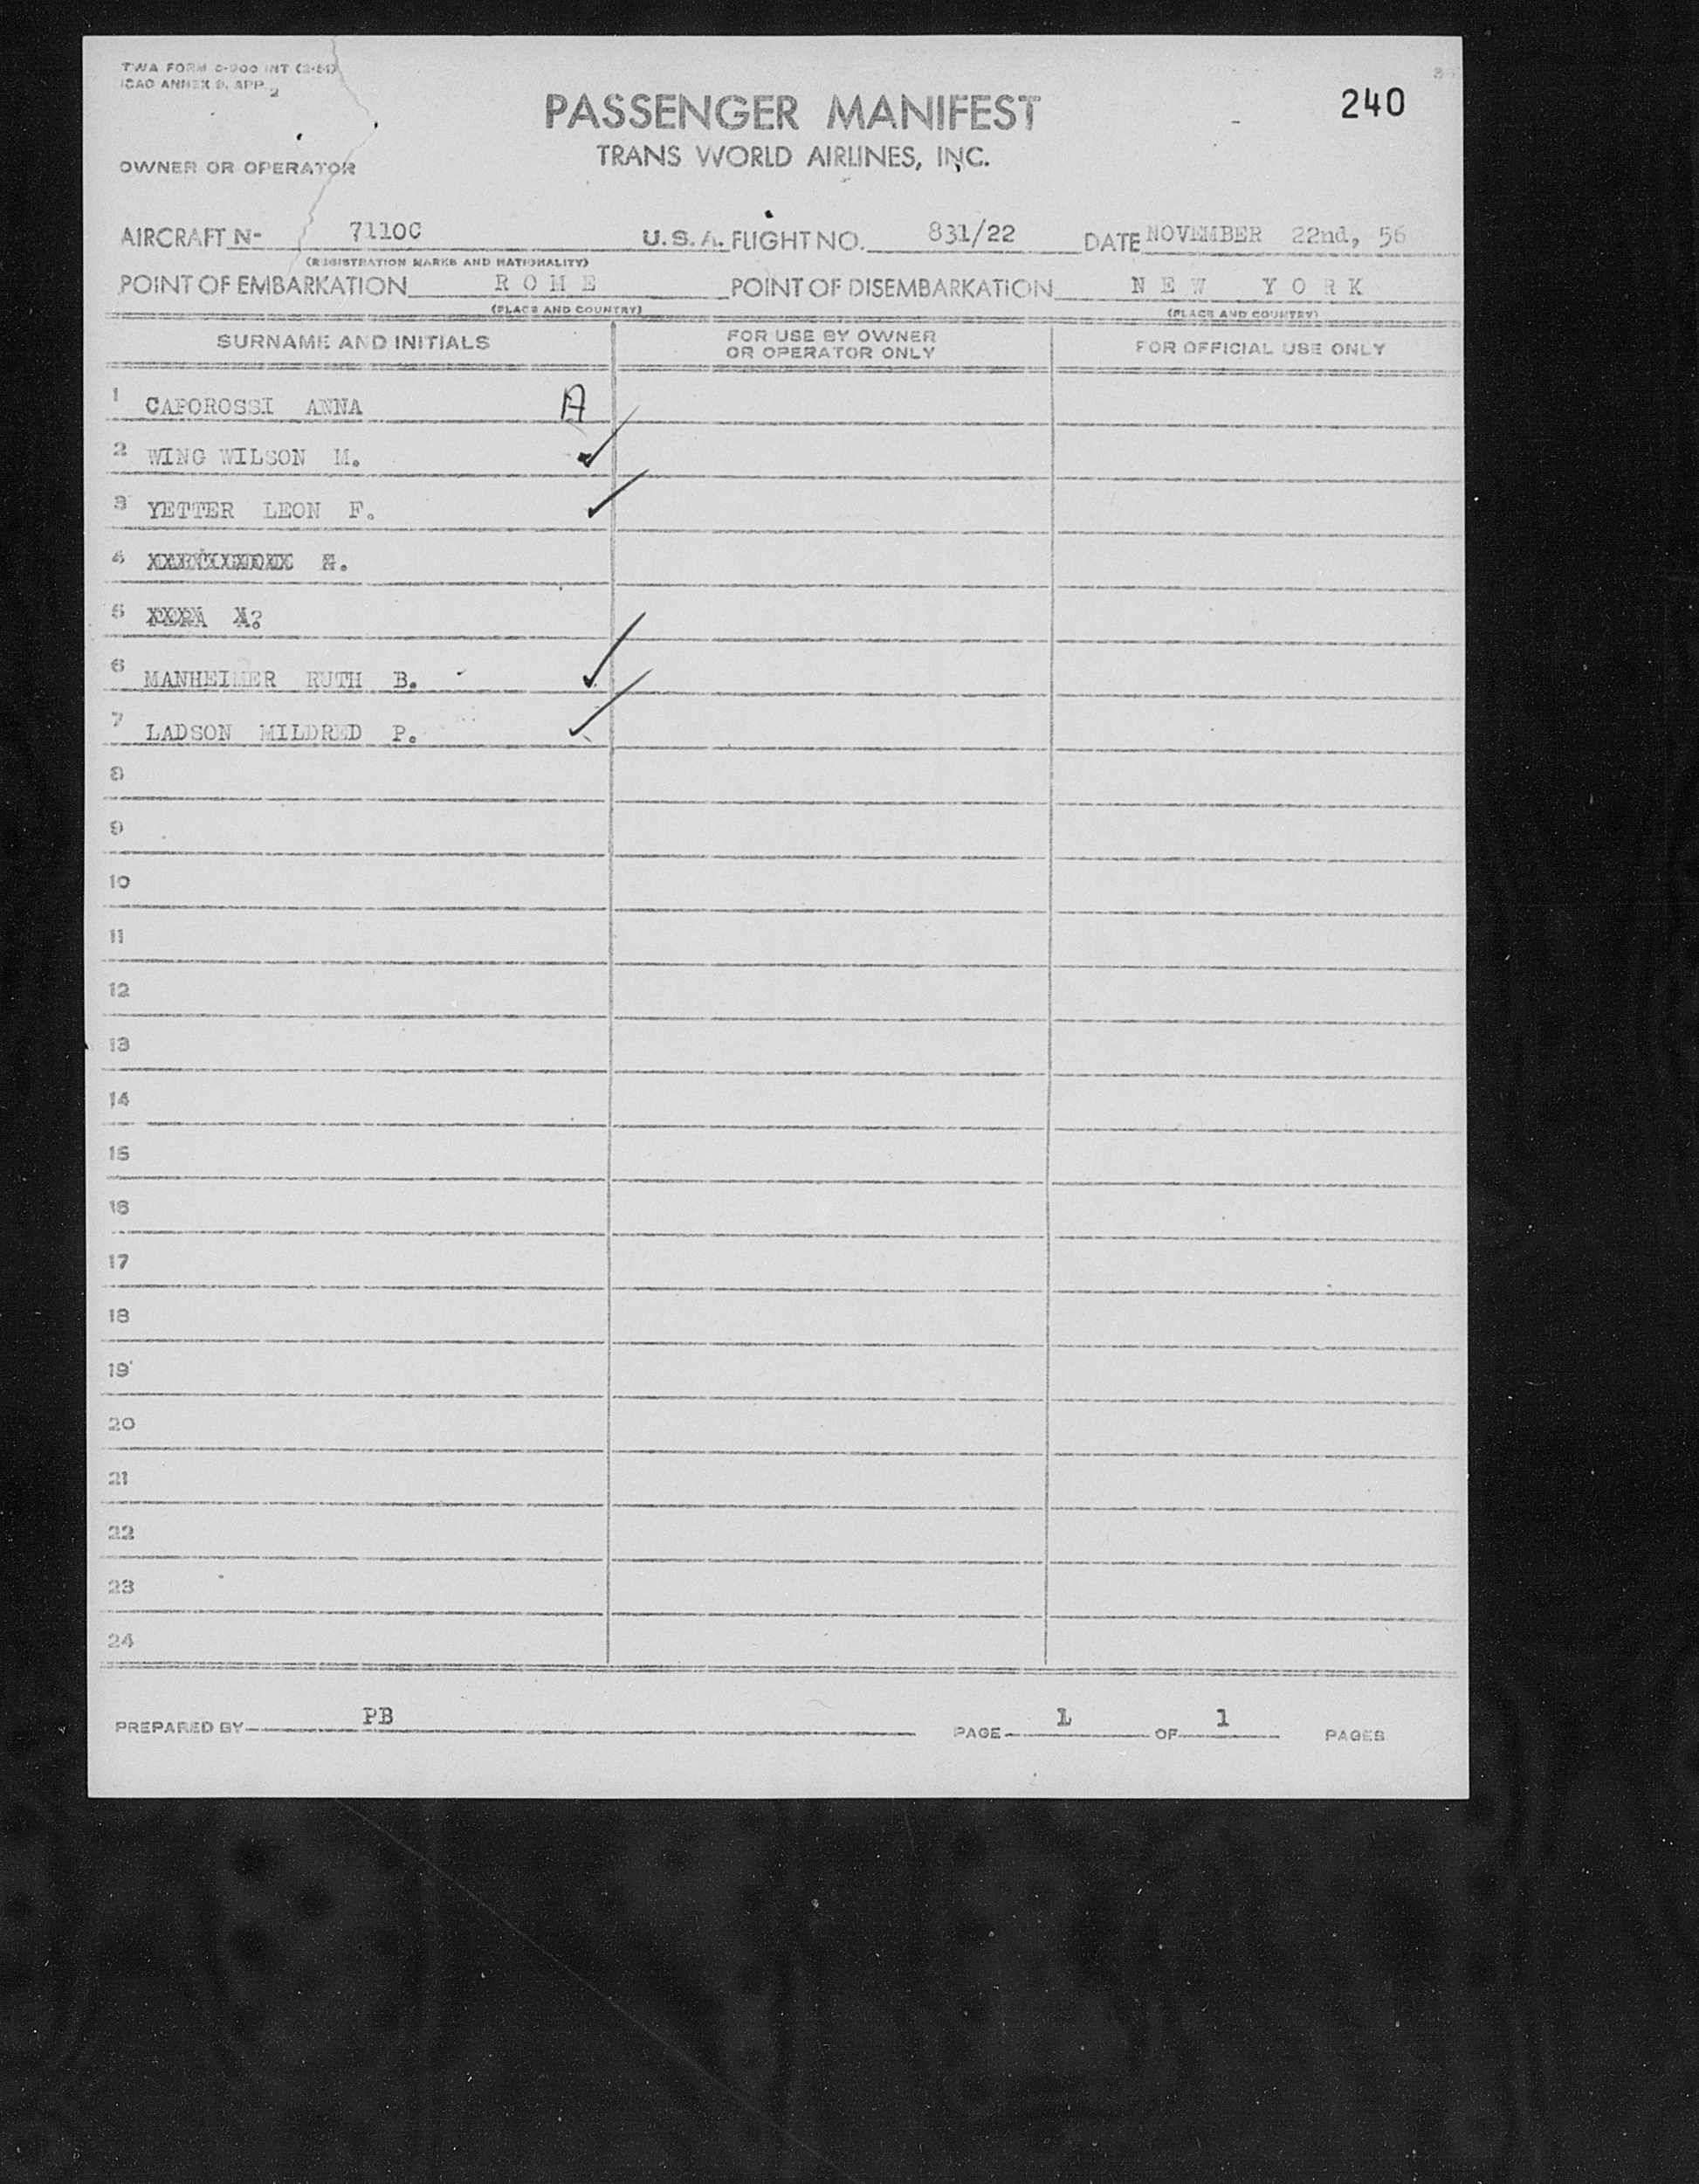 TWA FORM 0-900 INT (2-51)
ICAO ANNEX 9. APP. 2
PASSENGER MANIFEST
240
TRANS WORLD AIRLINES, INC.
OWNER OR OPERATOR
AIRCRAFT N- 7110C U.S.A. FLIGHT NO. 831/22 DATE NOVEMBER 22nd, 56
(REGISTRATION MARKS AND NATIONALITY)
POINT OF EMBARKATION R O M E POINT OF DISEMBARKATION N E W Y O R K
(PLACE AND COUNTRY) (PLACE AND COUNTRY)
SURNAME AND INITIALS FOR USE BY OWNER OR OPERATOR ONLY FOR OFFICIAL USE ONLY
1 CAPOROSSI ANNA A
2 WING WILSON M. ✓
3 YETTER LEON F. ✓
4
5
6 MANHEIMER RUTH B. ✓
7 LADSON MILDRED P. ✓
8
9
10
11
12
13
14
15
16
17
18
19
20
21
22
23
24
PREPARED BY PB PAGE 1 OF 1 PAGES